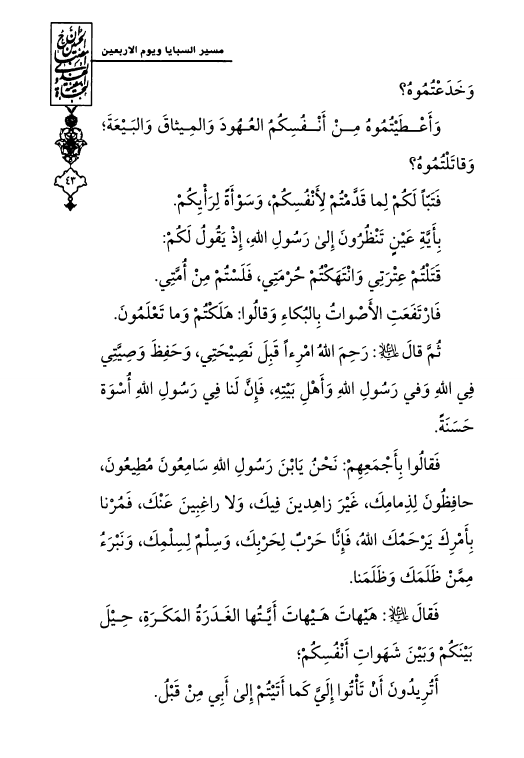 مسير السبايا ويوم الاربعين
٤٣
وَخَدَعْتُمُوهُ؟
وَأَعْـطَيْتُمُوهُ مِـنْ أَنْـفُسِكُمُ العُـهُودَ وَالمِـيثاقَ وَالبَـيْعَةَ؛
وَقاتَلْتُمُوهُ؟
فَتَبّاً لَكُمْ لِما قَدَّمْتُمْ لِأَنْفُسِكُمْ، وَسَوْأَةً لِرَأْيِكُمْ.
بِأَيَّةِ عَيْنٍ تَنْظُرُونَ إِلىٰ رَسُولِ اللهِ، إِذْ يَقُولُ لَكُمْ:
قَتَلْتُمْ عِتْرَتِي وَانْتَهَكْتُمْ حُرْمَتِي، فَلَسْتُمْ مِنْ أُمَّتِي.
فَارْتَفَعَتِ الأَصْواتُ بِالبُكاءِ وَقالُوا: هَلَكْتُمْ وَما تَعْلَمُونَ.
ثُمَّ قالَ ﷿: رَحِمَ اللهُ امْرِءاً قَبِلَ نَصِيْحَتِي، وَحَفِظَ وَصِيَّتِي
فِي اللهِ وَفي رَسُولِ اللهِ وَأَهْلِ بَيْتِهِ، فَإِنَّ لَنا فِي رَسُولِ اللهِ أُسْوَة
حَسَنَةً.
فَقالُوا بِأَجْمَعِهِمْ: نَحْنُ يَابْنَ رَسُولِ اللهِ سَامِعُونَ مُطِيعُونَ،
حافِظُونَ لِذِمامِكَ، غَيْرَ زاهِدِينَ فِيكَ، وَلا راغِبِينَ عَنْكَ، فَمُرْنا
بِأَمْرِكَ يَرْحَمُكَ اللهُ، فَإِنَّا حَرْبٌ لِحَرْبِكَ، وَسِلْمٌ لِسِلْمِكَ، وَنَبْرَءُ
مِمَّنْ ظَلَمَكَ وَظَلَمَنا.
فَقالَ: هَيْهاتَ هَيْهاتَ أَيَّـتُها الغَدَرَةُ المَكَرَةِ، حِـيْلَ
بَيْنَكُمْ وَبَيْنَ شَهَواتِ أَنْفُسِكُمْ؛
أَتُرِيدُونَ أَنْ تَأْتُوا إِلَيَّ كَما أَتَيْتُمْ إِلىٰ أَبِي مِنْ قَبْلُ.